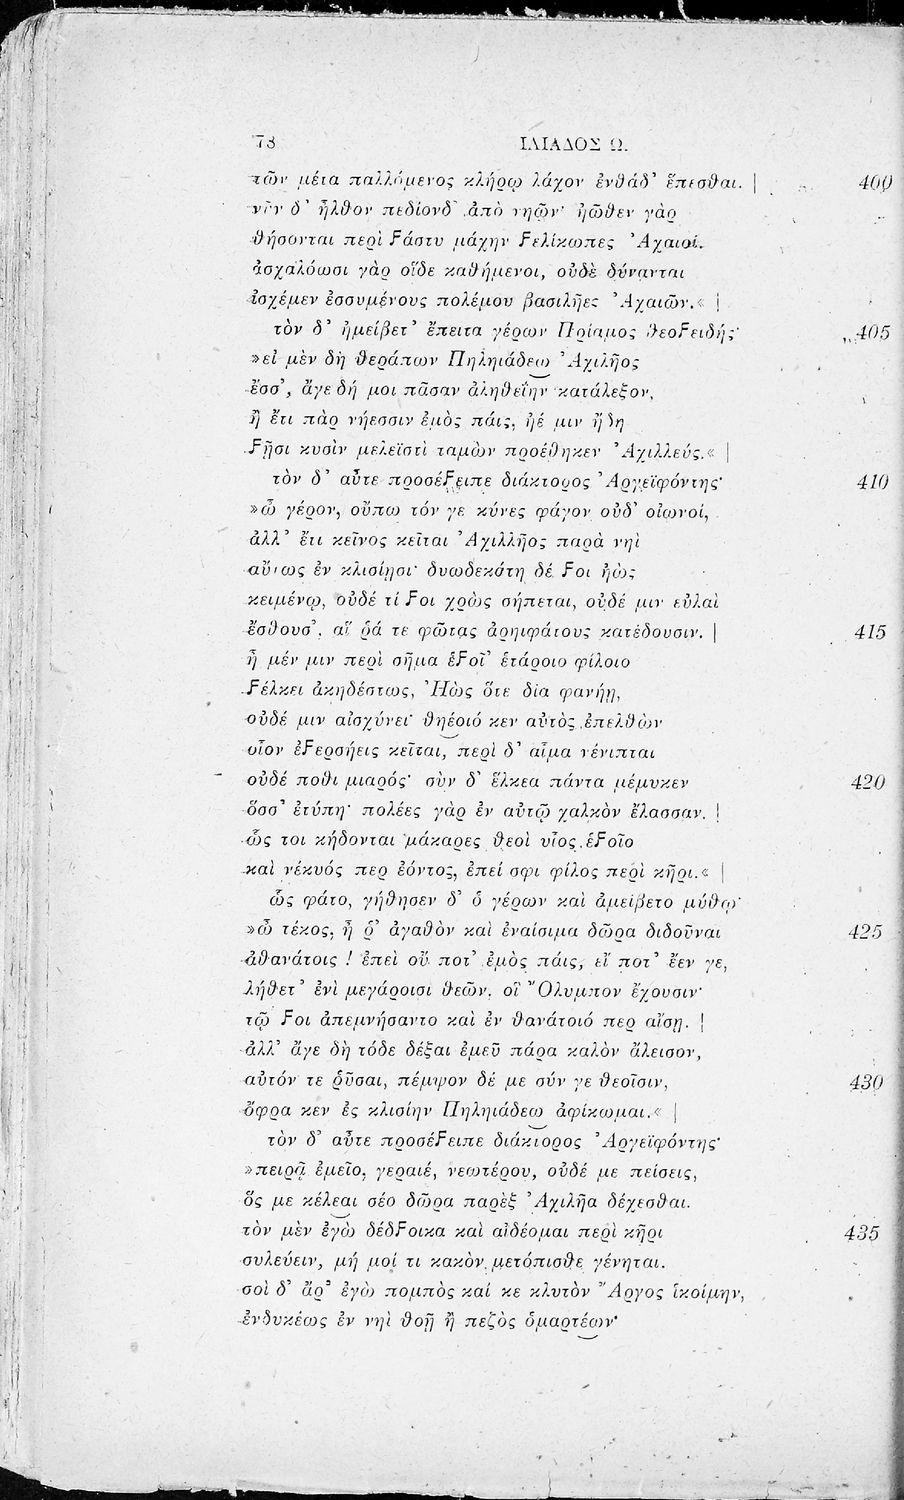 78 ΙΛΙΑΔΟΣ Ω.
τῶν μέτα παλλόμενος κλήρῳ λάχον ἐνθάδ’ ἕπεσθαι. | 400
νῦν δ’ ἦλθον πεδίονδ’ ἀπὸ νηῶν· ἠῶθεν γὰρ
θήσονται περὶ Ϝάστυ μάχην Ϝελίκωπες Ἀχαιοί.
ἀσχαλόωσι γὰρ οἵδε καθήμενοι, οὐδὲ δύνανται
ἰσχέμεν ἐσσυμένους πολέμου βασιλῆες Ἀχαιῶν.« |
τὸν δ’ ἠμείβετ’ ἔπειτα γέρων Πρίαμος θεοϜειδής· 405
»εἰ μὲν δὴ θεράπων Πηληιάδεω Ἀχιλῆος
ἔσσ’, ἄγε δή μοι πᾶσαν ἀληθεΐην κατάλεξον,
ἢ ἔτι πὰρ νήεσσιν ἐμὸς πάις, ἠέ μιν ἤδη
Ϝῇσι κυσὶν μελεϊστὶ ταμὼν προέθηκεν Ἀχιλλεύς.« |
τὸν δ’ αὖτε προσέϜειπε διάκτορος Ἀργεϊφόντης· 410
»ὦ γέρον, οὔπω τόν γε κύνες φάγον οὐδ’ οἰωνοί,
ἀλλ’ ἔτι κεῖνος κεῖται Ἀχιλλῆος παρὰ νηὶ
αὔτως ἐν κλισίῃσι· δυωδεκάτη δέ Ϝοι ἠὼς
κειμένῳ, οὐδέ τί Ϝοι χρὼς σήπεται, οὐδέ μιν εὐλαὶ
ἔσθουσ’, αἵ ῥά τε φῶτας ἀρηιφάτους κατέδουσιν. | 415
ἦ μέν μιν περὶ σῆμα ἑϜοῖ’ ἑτάροιο φίλοιο
Ϝέλκει ἀκηδέστως, Ἠὼς ὅτε δῖα φανήῃ,
οὐδέ μιν αἰσχύνει· θηέοιό κεν αὐτὸς ἐπελθὼν
οἷον ἐϜερσήεις κεῖται, περὶ δ’ αἷμα νένιπται
οὐδέ ποθι μιαρός· σὺν δ’ ἕλκεα πάντα μέμυκεν 420
ὅσσ’ ἐτύπη· πολέες γὰρ ἐν αὐτῷ χαλκὸν ἔλασσαν. |
ὥς τοι κήδονται μάκαρες θεοὶ υἷος ἑϜοῖο
καὶ νέκυός περ ἐόντος, ἐπεί σφι φίλος περὶ κῆρι.« |
ὣς φάτο, γήθησεν δ’ ὁ γέρων καὶ ἀμείβετο μύθῳ· 
»ὦ τέκος, ἦ ῥ’ ἀγαθὸν καὶ ἐναίσιμα δῶρα διδοῦναι 425
ἀθανάτοις ! ἐπεὶ οὔ ποτ’ ἐμὸς πάις, εἴ ποτ’ ἔεν γε,
λήθετ’ ἐνὶ μεγάροισι θεῶν, οἳ Ὄλυμπον ἔχουσιν·
τῷ Ϝοι ἀπεμνήσαντο καὶ ἐν θανάτοιό περ αἴσῃ. |
ἀλλ’ ἄγε δὴ τόδε δέξαι ἐμεῦ πάρα καλὸν ἄλεισον,
αὐτόν τε ῥῦσαι, πέμψον δέ με σύν γε θεοῖσιν, 430
ὄφρα κεν ἐς κλισίην Πηληιάδεω ἀφίκωμαι.« |
τὸν δ’ αὖτε προσέϜειπε διάκτορος Ἀργεϊφόντης·
»πειρᾷ ἐμεῖο, γεραιέ, νεωτέρου, οὐδέ με πείσεις,
ὅς με κέλεαι σέο δῶρα παρὲξ Ἀχιλῆα δέχεσθαι.
τὸν μὲν ἐγὼ δέδϜοικα καὶ αἰδέομαι περὶ κῆρι 435
συλεύειν, μή μοί τι κακὸν μετόπισθε γένηται.
σοὶ δ’ ἄρ’ ἐγὼ πομπὸς καί κε κλυτὸν Ἄργος ἱκοίμην,
ἐνδυκέως ἐν νηὶ θοῇ ἢ πεζὸς ὁμαρτέων·